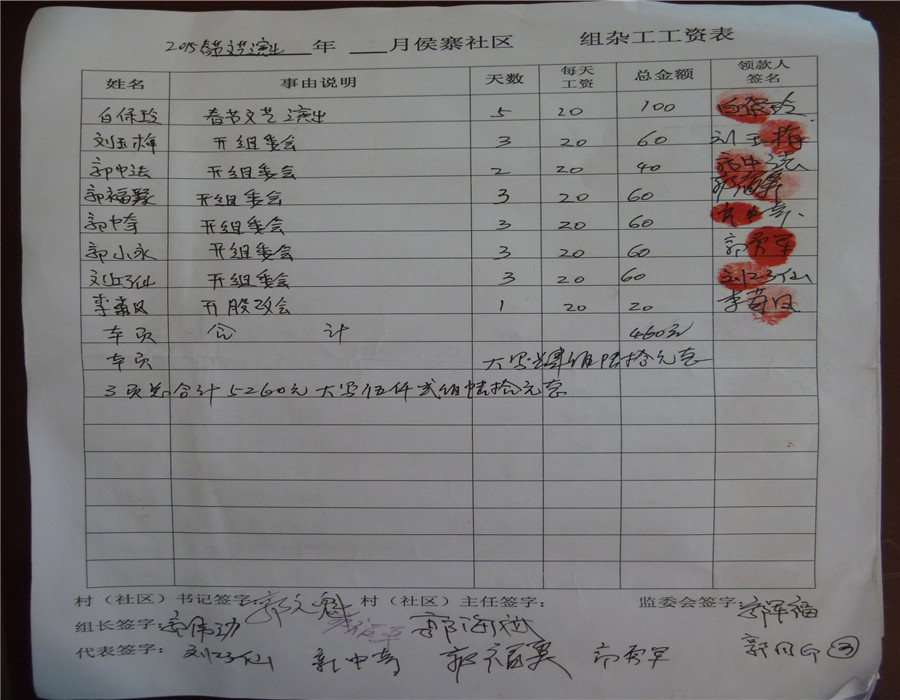 2015 春节文艺演出 年 月侯寨社区 组杂工工资表
姓名 事由说明 天数 每天工资 总金额 领款人签名
白保玲 春节文艺演出 5 20 100 白保玲
刘玉梅 开组委会 3 20 60 刘玉梅
郭中法 开组委会 2 20 40 郭中法
郭福聚 开组委会 3 20 60 郭福聚
郭中奇 开组委会 3 20 60 郭中奇
郭小永 开组委会 3 20 60 郭秀军
刘巧仙 开组委会 3 20 60 刘巧仙
李菊凤 开股改会 1 20 20 李菊凤
车页 合计 460元
车页 大写肆佰陆拾元整
3页总合计5260元大写伍仟贰佰陆拾元整
村（社区）书记签字： 郭文魁 村（社区）主任签字： 监委会签字：
组长签字： 郭海
代表签字： 刘巧仙 郭中奇 郭福聚 郭秀军 ③